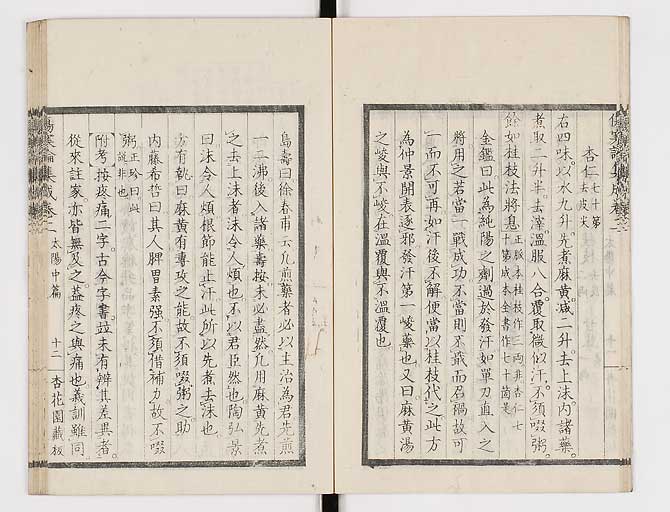 杏仁七十第去皮尖
右四味以水九升先煮麻黃減二升去上沫内諸藥
煮取二升半去滓溫服八合覆取微似汗不須啜粥
餘如桂枝法將息正脈本桂枝作三兩非杏仁七十第成本全書作七十箇是
金鑑曰此為純陽之劑過於發汗如單刀直入之
將用之若當一戰成功不當則不戢而召禍故可
一而不可再如汗後不解便當以桂枝代之此方
為仲景開表逐邪發汗第一峻藥也又曰麻黃湯
之峻與不峻在溫覆與不溫覆也
島壽曰徐春甫云凡煎藥者必以主治為君先煎
一二沸後入諸藥壽按未必盡然凡用麻黃先煮
之去上沫者沫令人煩也不以君臣然也陶弘景
曰沫令人煩根節能止汗此所以先煮去沫也
方有執曰麻黃有專攻之能故不須啜粥之助
内藤希哲曰其人脾胃素强不須借補力故不啜
粥正珍曰此說非也
附考按疼痛二字古今字書並未有辨其差異者
從來註家亦皆無及之蓋疼之與痛也義訓雖同
傷寒論集成卷二 太陽中篇 十二 杏花園藏板